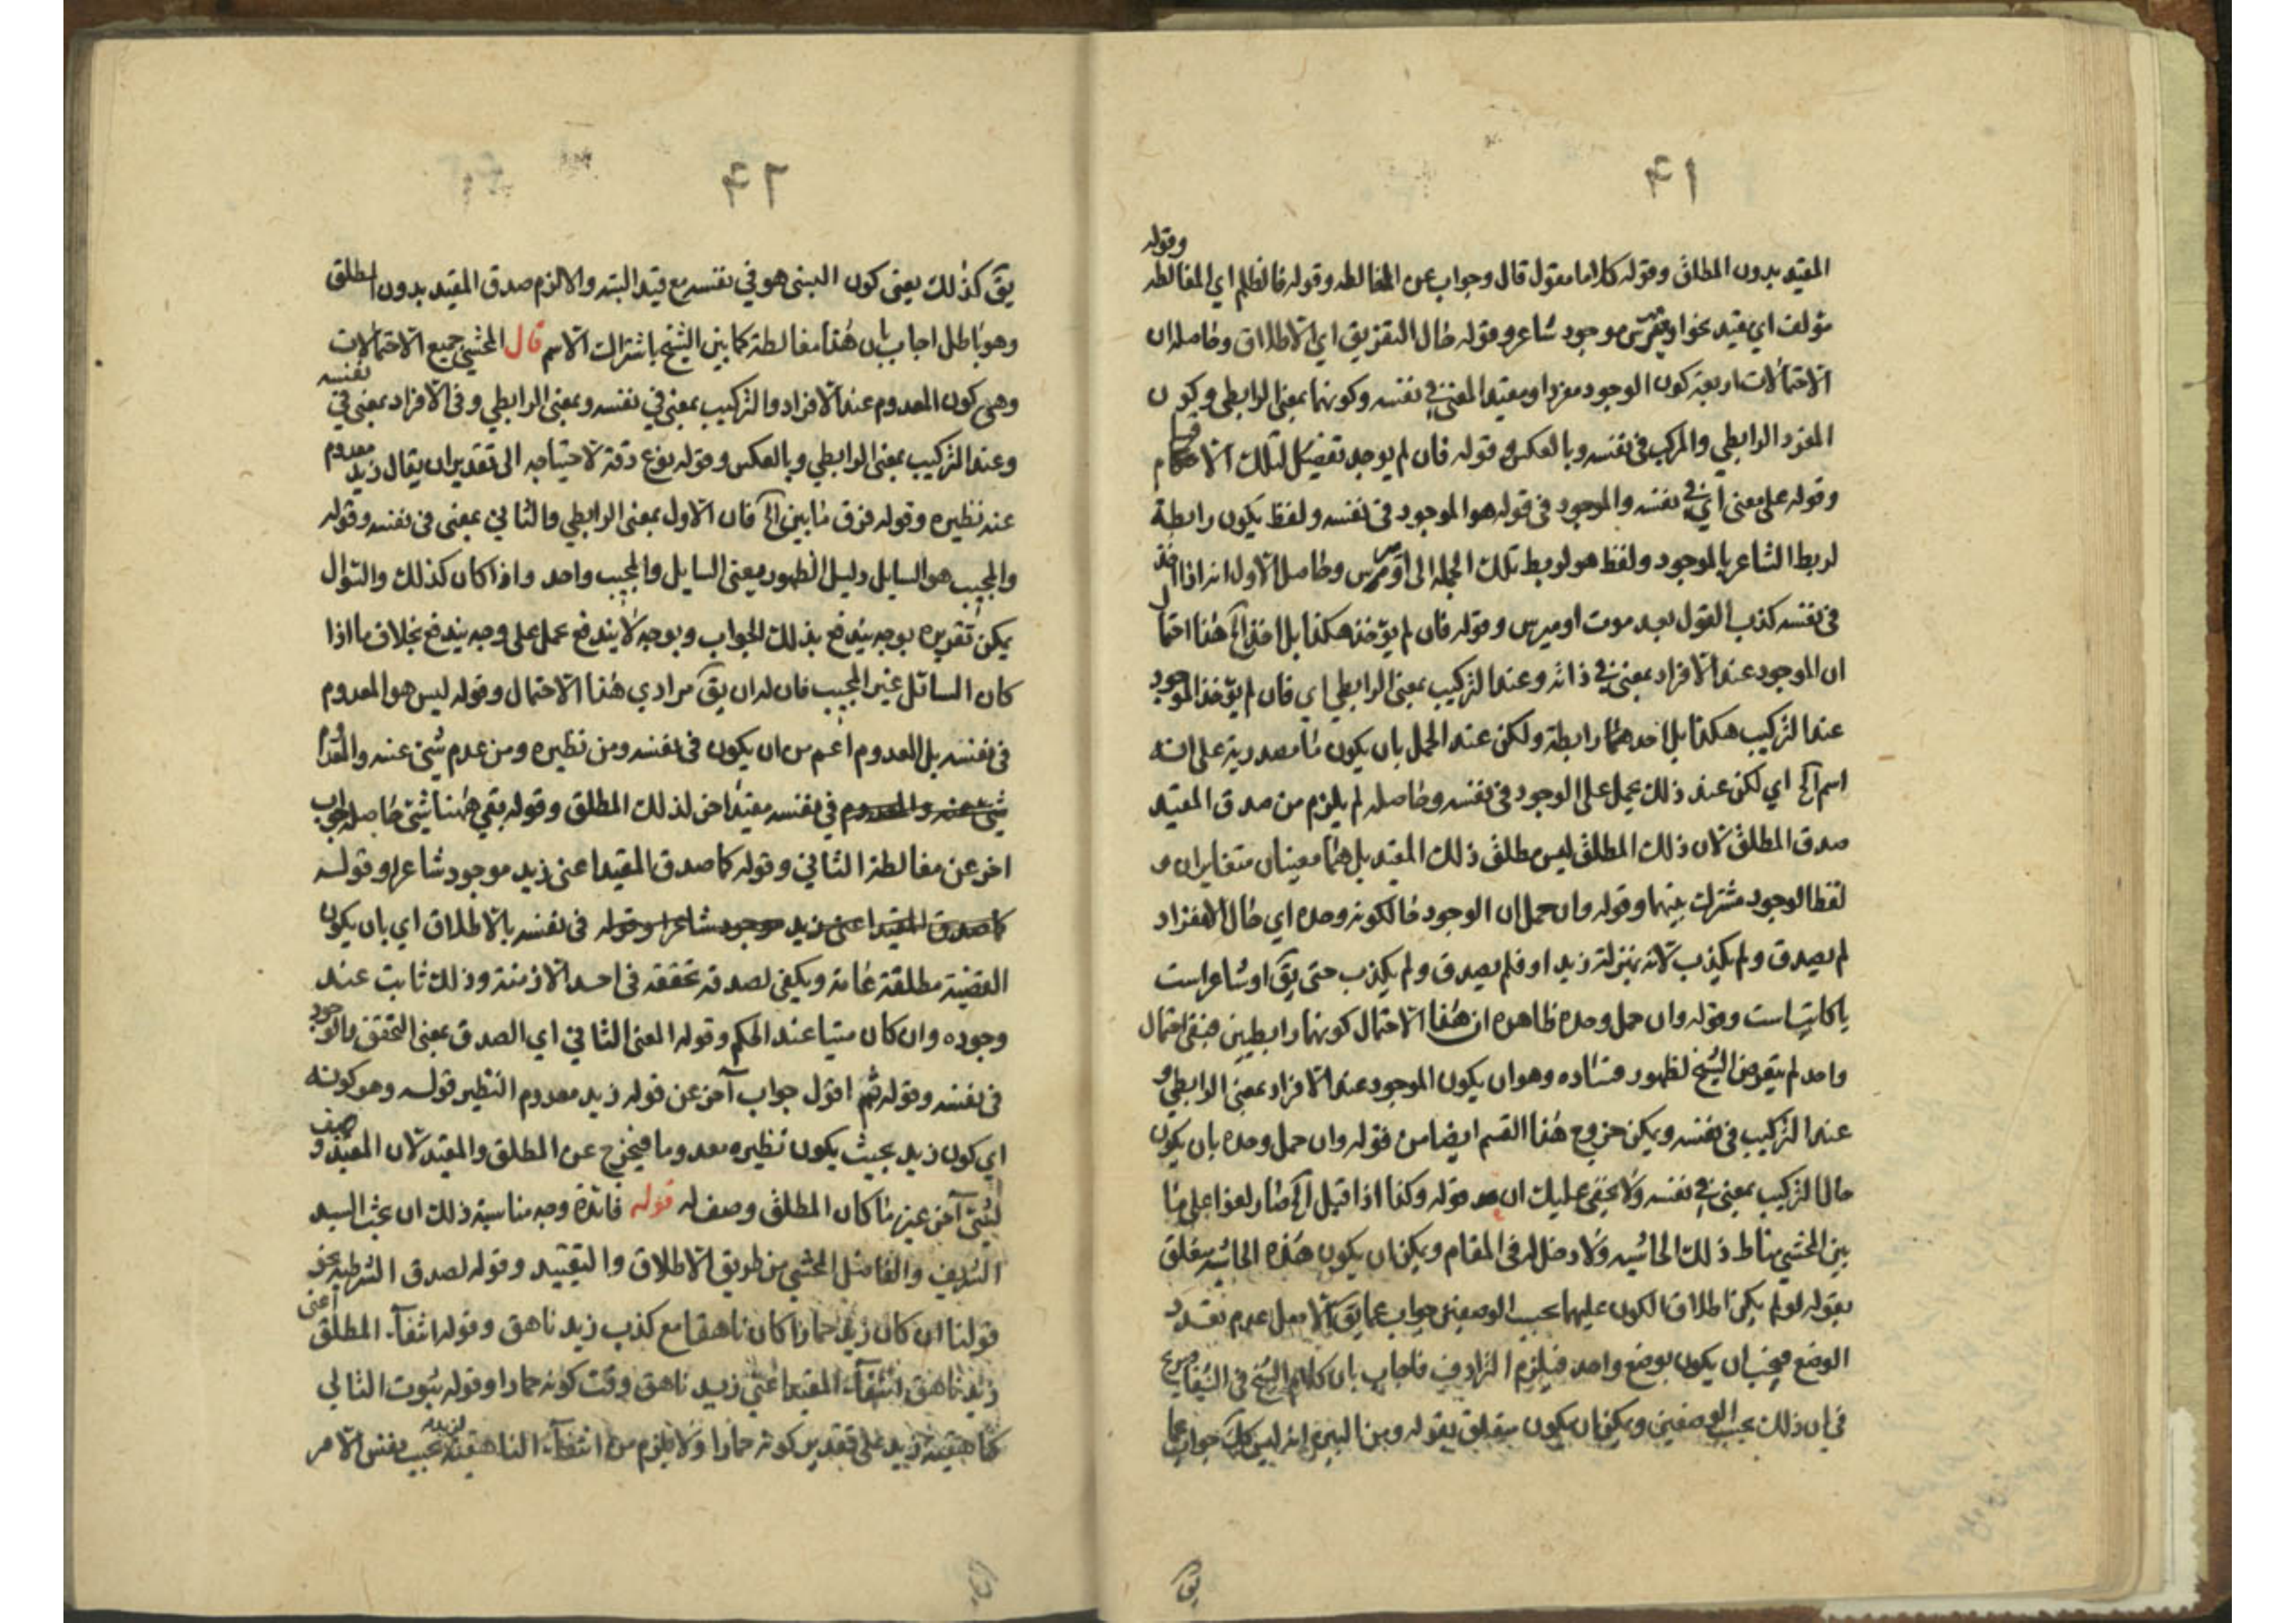 ٤١
وقوله
المقيد بدون المطلق وقوله كلاما مقول قال وجواب عن المغالطه وقوله فانظلم اي المغالطه
مؤلف اي مقيد نحو اوميرس موجود شاعر وقوله حال التفريق اي الاطلاق وحاصله ان
الاحتمالات اربعة كون الوجود مفردا ومقيدا لمعنى في نفسه وكونهما بمعنى الرابطي وكون
المفرد الرابطي والمركب في نفسه وبالعكس و قوله فان لم يوجد تفصيل لتلك الاحكام
وقوله على معنى أي في نفسه والموجود في قوله هو الموجود في نفسه ولفظ يكون رابطة
لربط الشاعر بالموجود ولفظ هو لربط تلك الجملة الى اوميرس وحاصل الاول انه اذا اخذ
في نفسه كذب القول بعد موت اوميرس وقوله فان لم يؤخذ هكذا بل اخذ الخ هذا احتمال
ان الموجود عند الافراد بمعنى في ذاته وعند التركيب بمعنى الرابطي اي فان لم يؤخذ الموجود
عند التركيب هكذا بل اخذ هما رابطة ولكن عند الحمل بان يكون ما مصدرية على انه
اسم الخ اي لكن عند ذلك يحمل على الوجود في نفسه وحاصله لم يلزم من صدق المقيد
صدق المطلق لان ذلك المطلق ليس مطلق ذلك المقيد بل هما معينان متغايران و
لفظ الوجود مشترك بينهما وقوله وان حمل ان الوجود حالكونه وحده اي حال الانفراد
لم يصدق ولم يكذب لانه بمنزلة زيد او فلم يصدق ولم يكذب حتى يق او شاعر است
يا كاتب است وقوله وان حمل وحده ظاهره ان هذا الاحتمال كونهما رابطيين فبقى احتمال
واحد لم يتعرض الشيخ لظهور فساده وهو ان يكون الموجود عند الافراد بمعنى الرابطي و
عند التركيب في نفسه ويمكن خروج هذا القسم ايضا من قوله وان حمل وحده بان يكون
حال التركيب بمعنى في نفسه ولا يخفى عليك ان قوله وكذا اذا قيل الخ صار لغوا على ما
بين المحشي مناط ذلك الحاشيه ولا دخل له في المقام ويمكن ان يكون هذه الحاشيه متعلق
بقوله لو لم يكن اطلاق الكون عليهما بحسب الوصفين جواب عما يق الاصل عدم تعدد
الوضع فيجب ان يكون بوضع واحد فيلزم الترادف فاجاب بان كلام الشيخ في الشفا صريح
في ان ذلك بحسب الوصفين ويمكن ان يكون متعلق بقوله وبهذا البيره انه ليس كك جواب عما
يق
٤٢
يق كذلك يعني كون البنى هو في نفسه مع قيد البته والا لزم صدق المقيد بدون المطلق
وهو باطل اجاب بان هذا مغالطة كما بين الشيخ باشتراك الاسم قال المحشي جميع الاحتمالات
وهي كون المعدوم عند الافراد والتركيب بمعنى في نفسه وبمعنى الرابطي وفى الافراد بمعنى في نفسه
وعند التركيب بمعنى الرابطي وبالعكس وقوله بنوع دقة لاحتياجه الى تقدير ان يقال زيد معدوم
عند نظيره وقوله فرق ما بين الخ فان الاول بمعنى الرابطي والثاني بمعنى في نفسه وقوله
والمجيب هو السايل دليل الظهور معنى السايل والمجيب واحد واذا كان كذلك والسؤال
يمكن تقريره بوجه يندفع بذلك الجواب وبوجه لا يندفع عمل على وجه يندفع بخلاف ما اذا
كان السائل غير المجيب فان له ان يق مرادي هذا الاحتمال وقوله ليس هو المعدوم
في نفسه بل المعدوم اعم من ان يكون في نفسه ومن نظيره ومن عدم شئ عنه والمعدوم
شئ عنه والمعدوم في نفسه مقيد اخر لذلك المطلق وقوله بقي ههنا شئ حاصله جواب
اخر عن مغالطة الثاني وقوله كما صدق المقيد اعنى زيد موجود شاعرا وقوله
كما صدق المقيد اعنى زيد موجود شاعرا وقوله في نفسه بالاطلاق اي بان يكون
القضية مطلقة عامة ويكفى لصدقه تحققه في احد الازمنة وذلك ثابت عند
وجوده وان كان ميتا عند الحكم وقوله المعنى الثاني اي الصدق بمعنى التحقق بالوجود
في نفسه وقوله ثم اقول جواب آخر عن قوله زيد معدوم النظير قوله وهو كونه
اي كون زيد بحيث يكون نظيره معدوما فيخرج عن المطلق والمقيد لان المقيد وصف
لشئ آخر غير ما كان المطلق وصف له قوله فائدة وجه مناسبة ذلك ان بحث السيد
الشريف والفاضل المحشي من طريق الاطلاق والتقييد وقوله لصدق الشرطيه نحو
قولنا ان كان زيد حمارا كان ناهقا مع كذب زيد ناهق وقوله انتفاء المطلق اعنى
زيد ناهق انتفاء المقيد اعنى زيد ناهق وقت كونه حمارا وقوله ثبوت التالي
كناهقية زيد على تقدير كونه حمارا ولا يلزم من انتفاء الناهقية لزيد بحسب نفس الامر